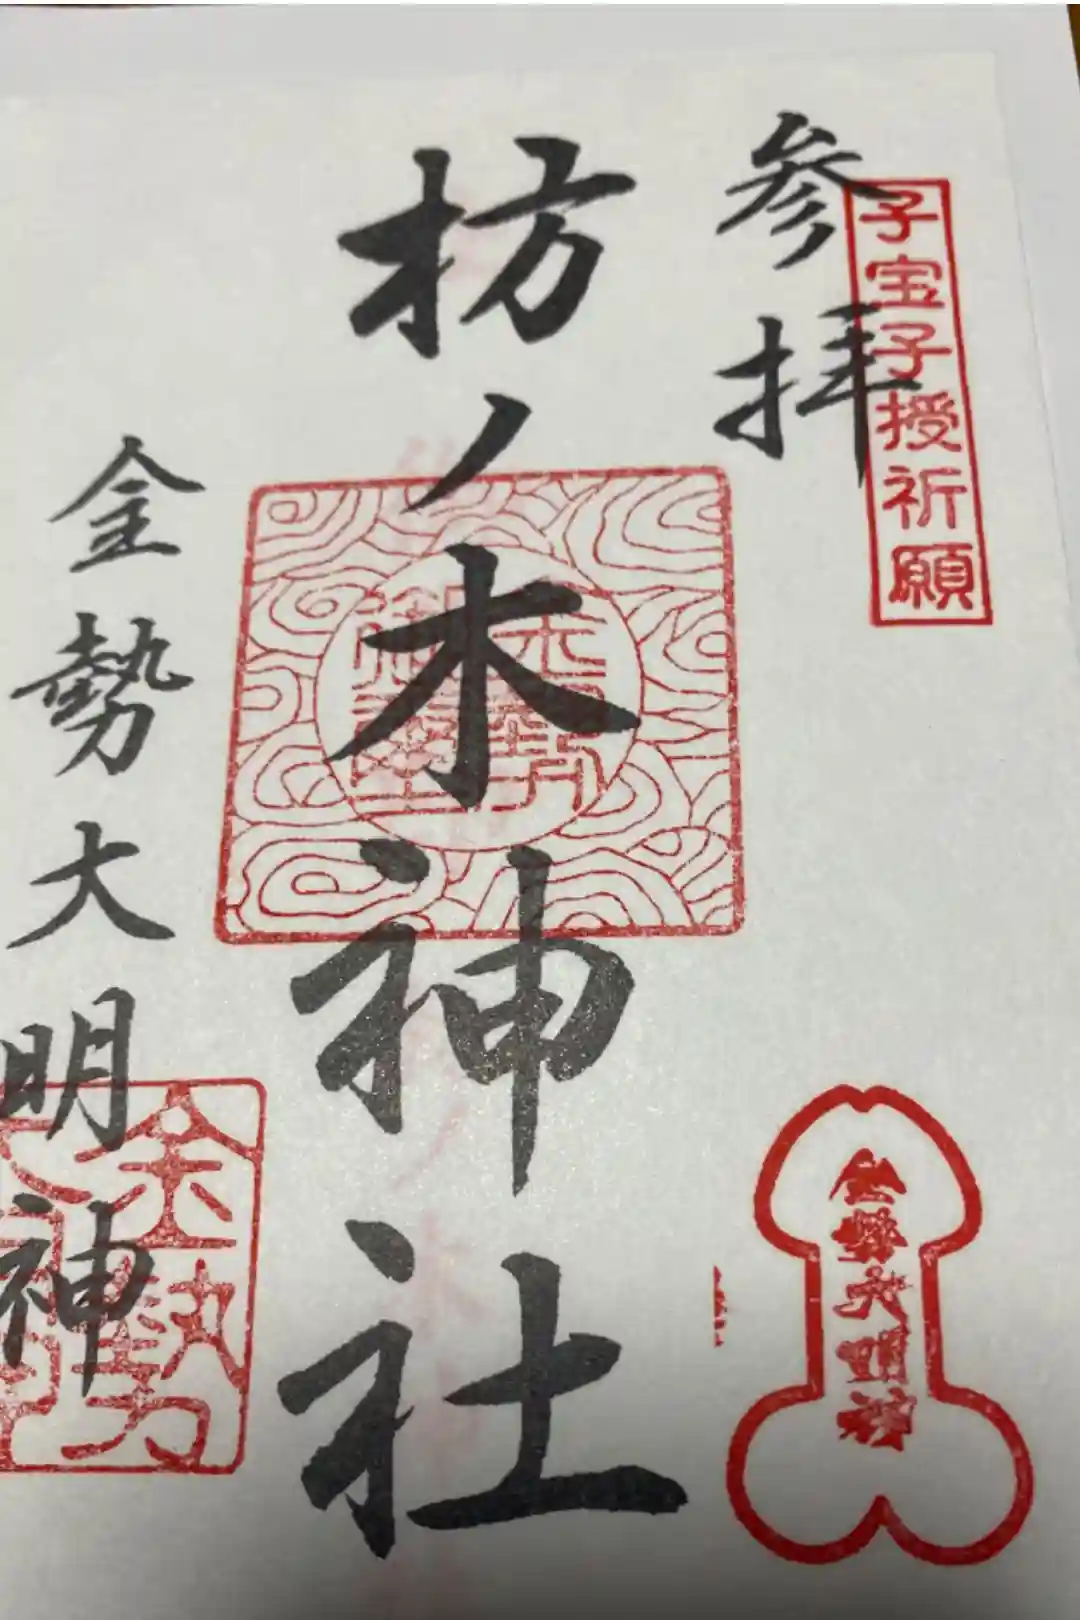 子宝子授祈願
参拝
枋ノ木神社
金勢大明神
金勢大明神
金勢